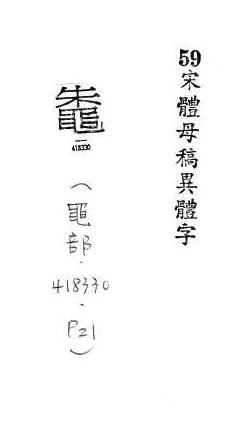 59宋體母稿異體字
鼄
418330
（黽部．418330．P21）